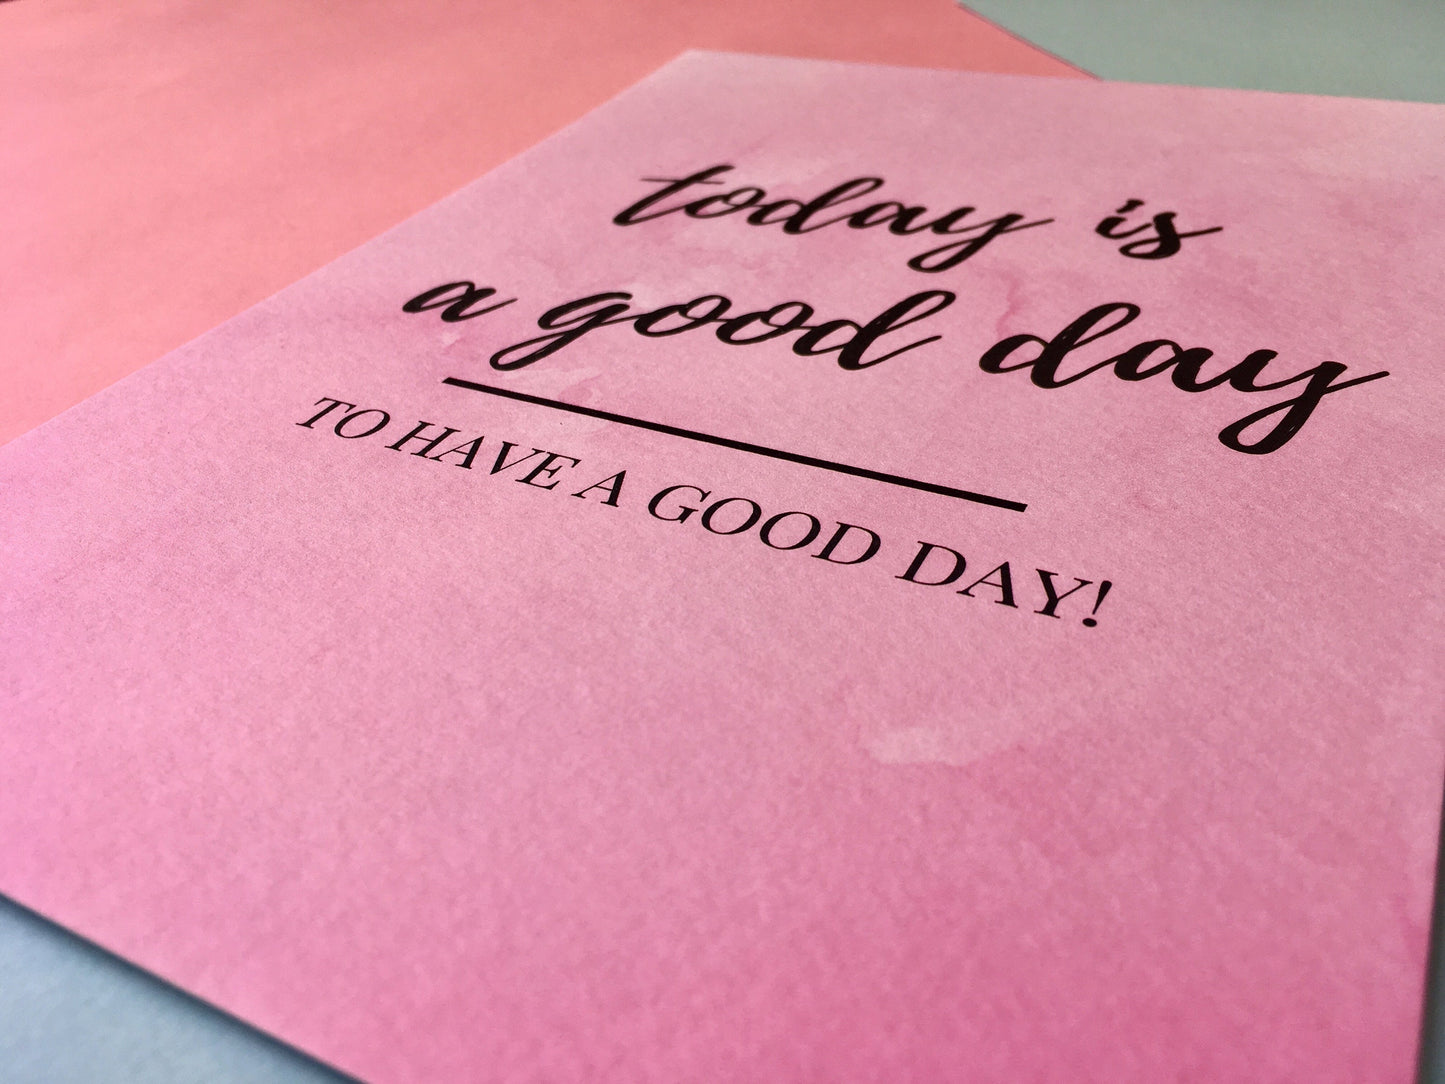 today is
a good day
TO HAVE A GOOD DAY!